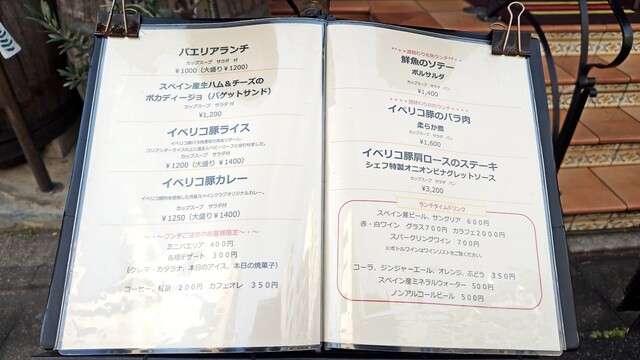 パエリアランチ
カップスープ サラダ 付
￥1000（大盛り ￥1200）
スペイン産生ハム＆チーズの
ボカディージョ（バゲットサンド）
カップスープ サラダ 付
￥1,200
イベリコ豚ライス
カップスープ サラダ付
￥1200（大盛り ￥1400）
イベリコ豚カレー
イベリコ豚肉を使用した月島スペインクラブオリジナルカレー。
カップスープ サラダ付
￥1250（大盛り ￥1400）
～・～ランチご注文のお客様限定～・～
ミニパエリア ４００円
各種デザート ３００円
（クレマ・カタラナ、本日のアイス、本日の焼菓子）
コーヒー、紅茶 ２００円 カフェオレ ３５０円
鮮魚のソテー
ポルサルダ
カップスープ サラダ パン
￥1,400
イベリコ豚のバラ肉
柔らか煮
カップスープ サラダ パン
￥1,600
イベリコ豚肩ロースのステーキ
シェフ特製オニオンビナグレットソース
カップスープ サラダ パン
￥3,200
ランチタイムドリンク
スペイン産ビール、サングリア ６００円
赤・白ワイン グラス700円 カラフェ2000円
スパークリングワイン 700円
※ボトルワインはワインリストをご覧ください。
コーラ、ジンジャーエール、オレンジ、ぶどう ３５０円
スペイン産ミネラルウォーター 500円
ノンアルコールビール 500円